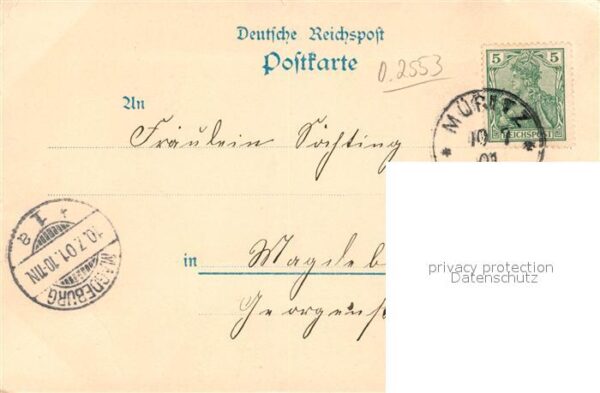 Deutsche Reichspost
Postkarte
0.2553
5 5
REICHSPOST
* MÜRITZ *
10 7
01
An
Fräulein Söchting
in Magdeb
Georgenst
MAGDEBURG
10.7.01.10-11N
* 1 a
privacy protection
Datenschutz